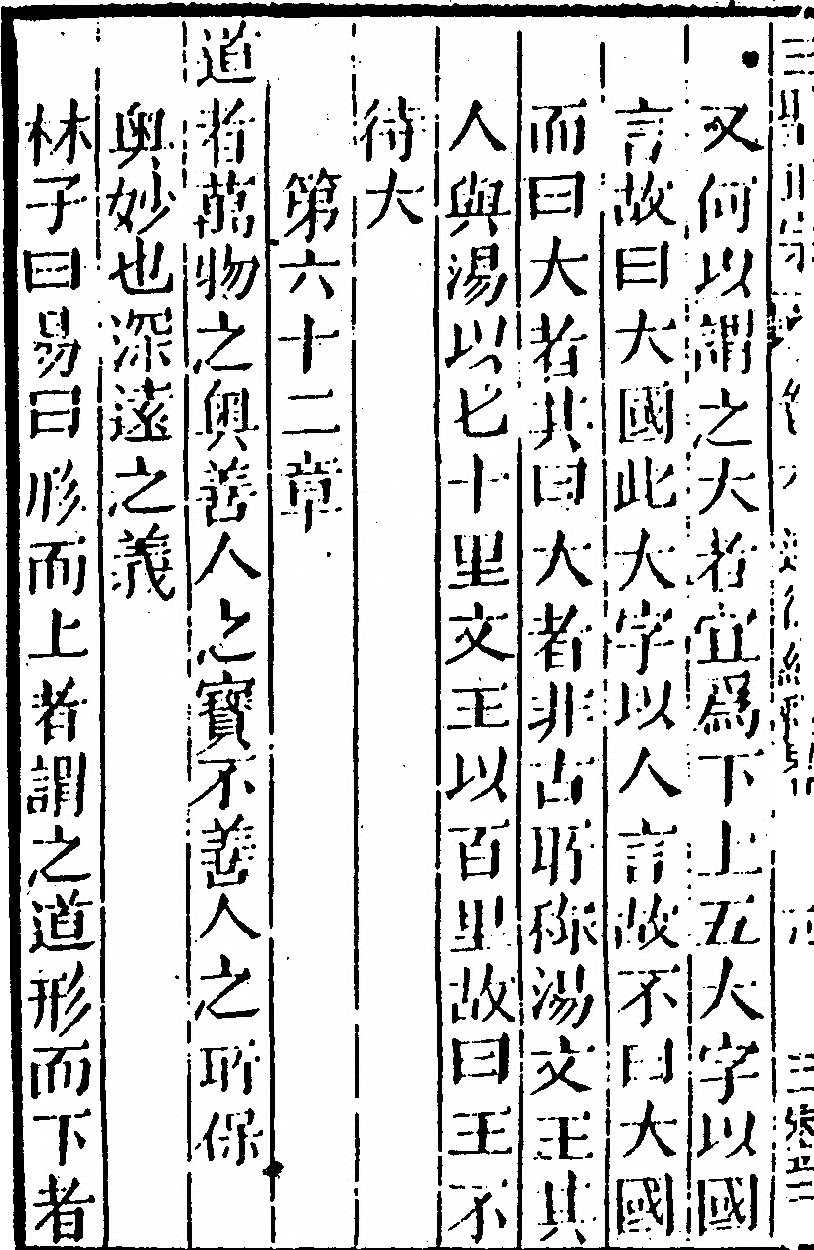 又何以謂之大者宜為下上五大字以國
言故曰大國此大字以人言故不曰大國
而曰大者其曰大者非古所称湯文王其
人與湯以七十里文王以百里故曰王不
待大
第六十二章
道者萬物之奧善人之寶不善人之所保
奧妙也深遠之義
林子曰易曰形而上者謂之道形而下者